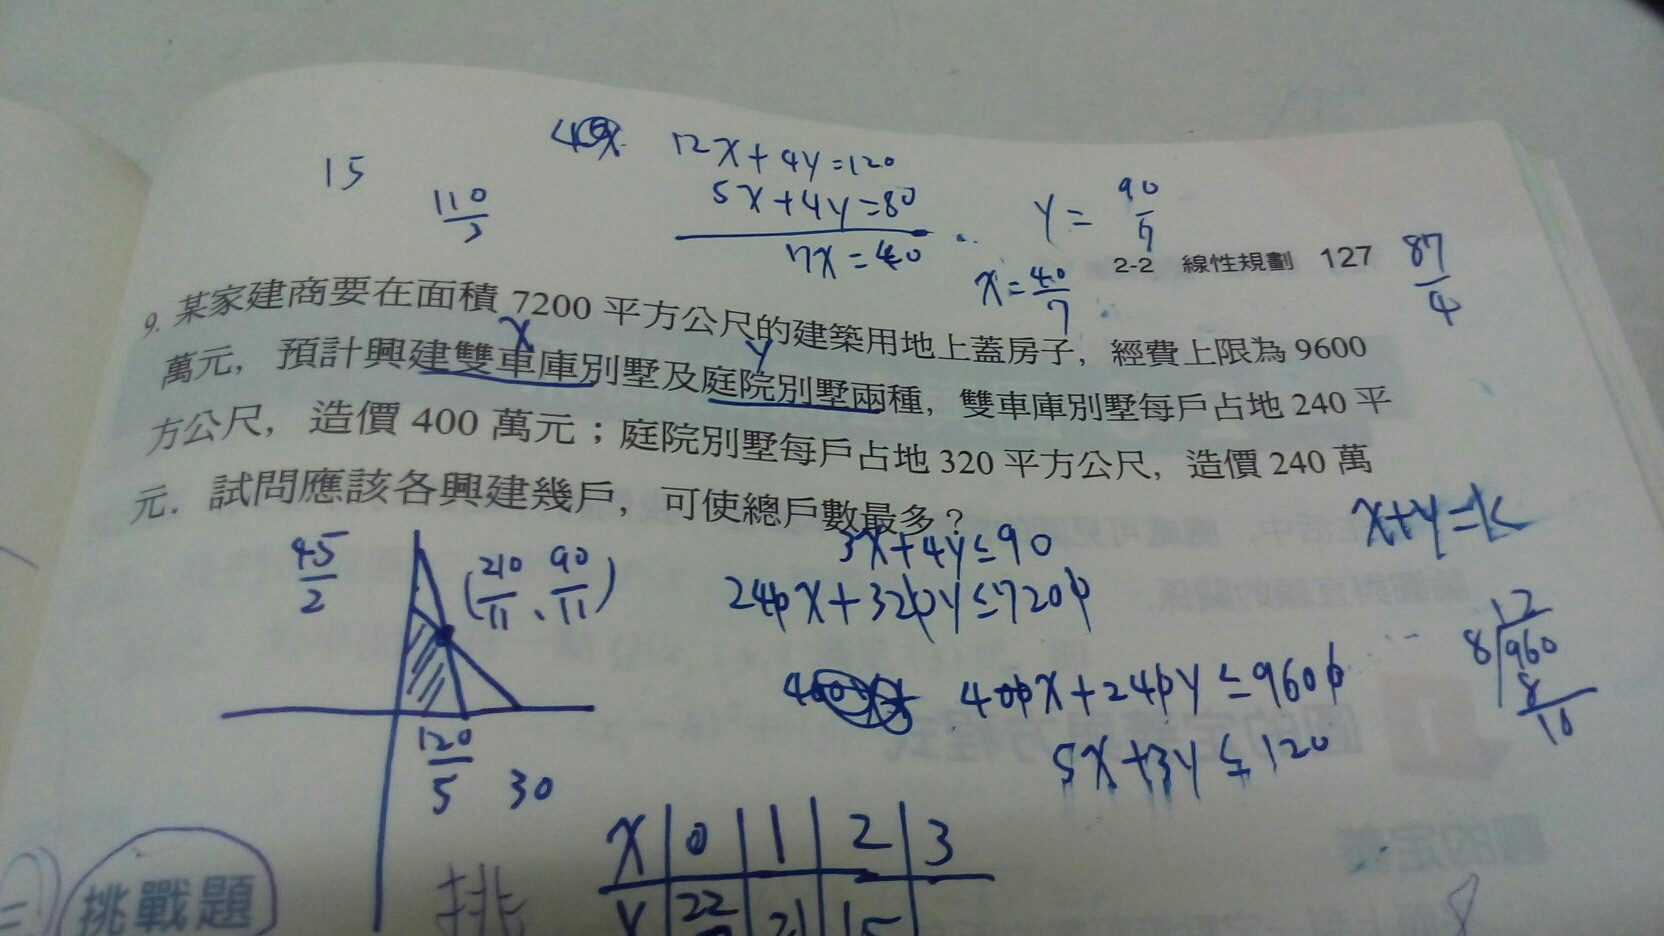 15
110
12x+4y=120
5x+4y=80
7x=40
x=40/7
y=
90
87/4
2-2 線性規劃 127
9. 某家建商要在面積 7200 平方公尺的建築用地上蓋房子，經費上限為 9600
x
y
萬元，預計興建雙車庫別墅及庭院別墅兩種，雙車庫別墅每戶占地 240 平
方公尺，造價 400 萬元；庭院別墅每戶占地 320 平方公尺，造價 240 萬
元．試問應該各興建幾戶，可使總戶數最多？
x+y=k
3x+4y≤90
240x+320y≤7200
400x+240y≤9600
5x+3y≤120
45/2
(210/11、90/11)
120/5
30
12
8 960
8
16
x 0 1 2 3
y 22 21 15
挑戰題
挑